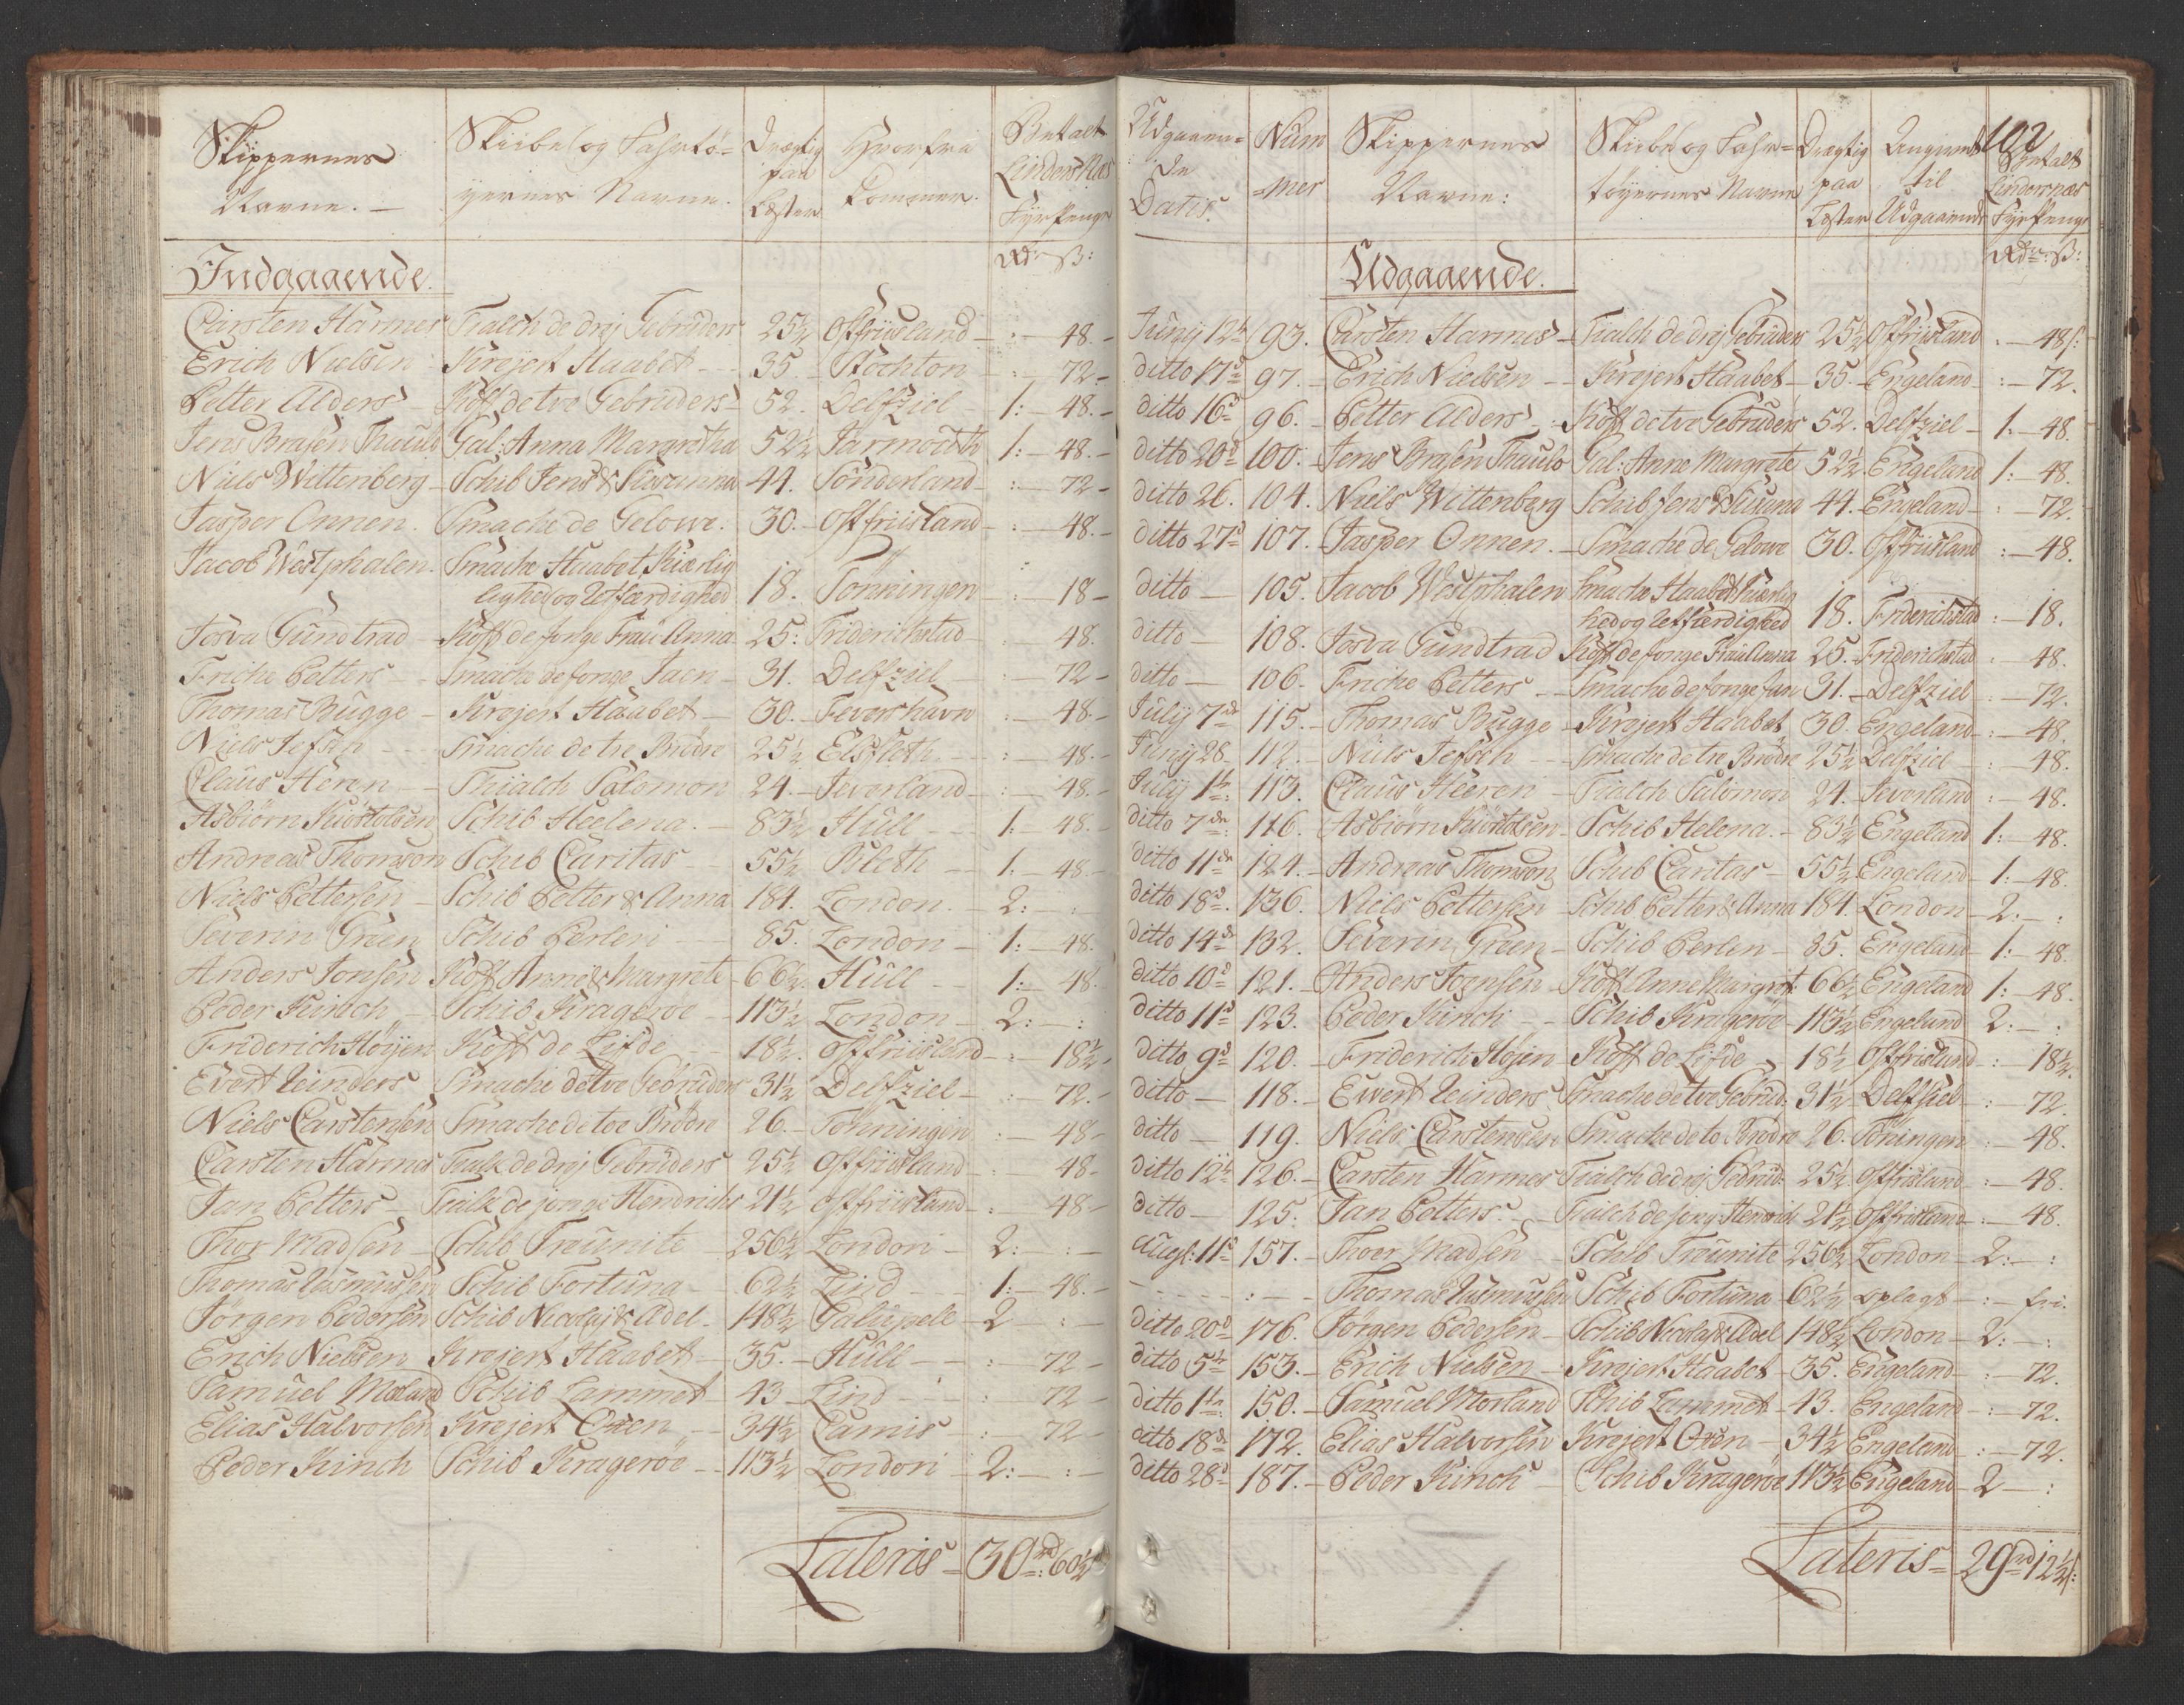 Skippernes Navne. | Skiibe og Fahrtöyernes Navne. | Drægtig paa Læster | Hvorfra kommer. | Betalt Lindersnæs Fyrpenge
Rd: ß:
Indgaaende.
Carsten Harmes Tialch de drej Gebrüders 25½ Ostfriisland - : - 48. -
Erich Nielsen Krejert Haabet - 35. Stockton - : - 72 -
Petter Alders - Koff de tve Gebrüders - 52. Delfziel - 1: - 48. -
Jens Brasen Thaulo Gal: Anna Margretha 52½ Jarmouth 1: - 48. -
Niels Wittenberg - Schib Jens & Susanna 44. Sönderland - : - 72 -
Jasper Onnen. Smache de Gelowe. 30. - Ostfriisland - : - 48. -
Jacob Westphalen. Smache Haabet Kiærlig
lighed og Retfærdighed 18. Tönningen - : - 18 -
Josva Gundtrad - Koff de jonge Frau Anna. 25: Friderichstad - 48.
Friche Petters - Smache de jonge Jaen - 31. Delfziel - : - 72 -
Thomas Bugge - Krejert Haabet - 30. - Fevershavn : - 48. -
Niels Jefsen - Smache de tre Brödre 25½ Elsfleth. - : - 48. -
Claus Heren - Thialch Salomon 24. - Jeverland - : - 48. -
Asbiörn Kiöstolsen Schib Heelena. - 83½ Hull - 1: - 48. -
Andreas Thomson Schib Caritas - 55½ Bleth - 1. - 48. -
Niels Pettersen - Schib Petter & Anna 184. London. - 2: - :
Severin Green Schib Perlen - 85. London - 1: - 48.
Anders Jonsen Koff Anne & Margrete - 66½. Hull - 1: - 48.
Peder Kinch - Schib Kragerøe - 113½ London - 2: - :
Friderich Höyen Koff de Liefde - 18½. Ostfriisland - : 18½ -
Evert Reinders Smache de tve Gebrüders 31½ Delfziel - : - 72. -
Niels Carstensen Smache de toe Brödre 26. - Tönningen : - 48 -
Carsten Harmes Tialk de drej Gebrüders 25½ Ostfriisland - : 48 -
Jan Petters - Tialk de jonge Hendrichs 21½ Ostfriisland - : - 48 -
Thor Madsen - Schib Treunite - 256½ London - 2: : -
Thomas Rasmusen Schib Fortuna - 62½ Lind - 1: - 48. -
Jörgen Pedersen Schib Nicolaj & Adel - 148½ Galupele - 2 - : -
Erich Nielsen Krejert Haabet - 35. - Hull - : - 72 -
Samuel Morland Schib Lammet - 43 - Lind - : 72 -
Elias Halvorsen Krejert Oxen - 34½ Camis - : - 72 -
Peder Kinch Schib Kragerøe - 113½ London - 2: - : -
Lateris - 30 rd: 60½
102
Udgaaende Datis. | Nummer | Skippernes Navne: | Skiibe og Fahrtöyernes Navne | Drægtig paa Læster | Angivet til Udgaaende | Betalt Lindersnæs Fyrpenge
Rdr: ß:
Udgaaende.
Junij 12t 93. Carsten Harmes - Tialch de drej Gebrüder 25½ Ostfriisland - : - 48 ß:
ditto 17d 97. - Erich Nielsen - Krejert Haabet - 35. - Engeland - : - 72.
ditto 16d 96. - Petter Alders - Koff de tve Gebrüders 52. Delfziel - 1. - 48.
ditto 20d 100. - Jens Brasen Thaulo Gal: Anne Margrete 52½ Engeland 1: - 48.
ditto 26. 104. Niels Wittenberg Schib Jens & Susana 44. Engeland - : - 72.
ditto 27d 107. - Jasper Onnen. - Smache de Gelowe 30. Ostfriisland : - 48.
ditto - 105. Jacob Westphalen Smache Haabet Kiærlig
hed og Retfærdighed 18. Friderichstad : - 18.
ditto - 108. Josva Gundtrad Koff de jonge Frau Anna 25. - Friderichstad : - 48.
ditto - 106. Friche Petters - Smache de jonge Jan 31. - Delfziel - : - 72.
Julij 7de 115. - Thomas Bugge - Krejert Haabet 30. Engeland - : - 48.
Junij 28 112. - Niels Jefsen - Smache de tre Brödre 25½ Delfziel - : - 48.
Julij 1t: 113. Claus Heeren - Tialch Salomon 24. Jeverland : - 48.
ditto 7de: 116. - Asbiörn Kiöstolsen - Schib Helena. - 83½ Engeland 1: - 48.
ditto 11de 124. - Andreas Thomson Schib Caritas - 55½ Engeland - 1. - 48.
ditto 18d. 136. Niels Pettersen - Schib Petter & Anna 184. London - 2: - :
ditto 14de 132. Severin Green - Schib Perlen - 85. Engeland - 1: - 48.
ditto 10d 121. - Anders Jornsen - Koff Anne Margret 66½ Engeland 1: - 48.
ditto 11d 123. Peder Kinch - Schib Kragerøe - 113½ Engeland 2: - :
ditto 9d 120. - Friderich Hojen Koff de Lifde - 18½ Ostfrisland - : - 18½.
ditto - 118. - Ewert Reinders Smache de tve Gebrüd: 31½ - Delfsiel - : - 72.
ditto - 119. Niels Carstensen Smache de to Brödre 26. Töningen : - 48.
ditto 12t 126. - Carsten Harmes Tialch de drej Gebrüd: 25½ Ostfrisland - : - 48.
ditto - 125. Jan Petters. - Tialch de jong Henrich 21½ Ostfrisland - : - 48.
Augs: 11d 157. - Thoer Madsen - Schib Treunite 256½ London - 2: - :
- : - Thomas Rasmusen Schib Fortuna - 62½ oplagt - : - fri.
ditto 20d 176. Jörgen Pedersen - Schib Nicolaj & Adel 148½ London - 2: - :
ditto 5t 153. - Erich Nielsen - Krejert Haabet - 35. Engeland - : - 72.
ditto 1te: 150. - Samuel Morland Schib Lammet - 43. Engeland - : - 72.
ditto 18de 172. Elias Halvorsen Krejert Oxen - 34½ Engeland - : - 72.
ditto 28d 187. - Peder Kinch - Schib Kragerøe 113½ Engeland - 2 - :
Lateris - 29 rd 12½ ß: